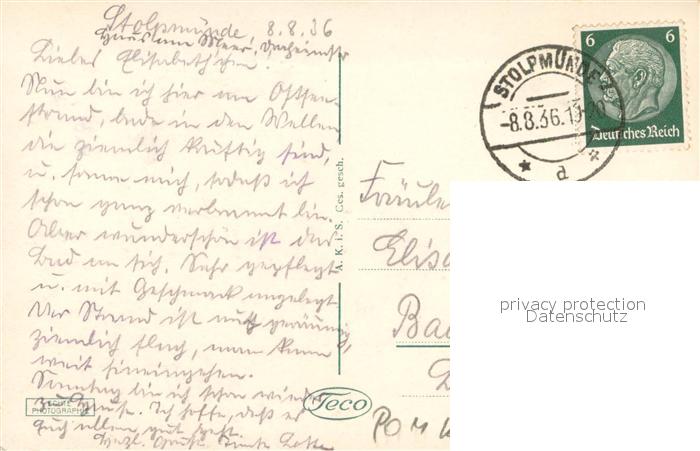 Stolpmünde 8.8.36
Haus am Meer,
Liebes Elisabethchen!
Nun bin ich hier am Ostsee-
strand, bade in den Wellen
die ziemlich kräftig sind,
u. sonne mich, sodaß ich
schon ganz verbrannt bin.
Aber wunderschön ist das
Bad an sich. Sehr gepflegt
u. mit Geschmack angelegt.
Der Strand ist auch geräumig,
ziemlich flach, man kann
weit hineingehen.
Sonntag bin ich schon wieder
zu Hause. Ich hoffe, daß es
Euch allen gut geht.
Herzl. Grüße Tante Lotte
ECHTE
PHOTOGRAPHIE
A. K. i. S. Ges. gesch.
Teco
6 6
Deutsches Reich
STOLPMÜNDE
-8.8.36.19-20
* a *
Fräule
Elis
Ba
POM
privacy protection
Datenschutz